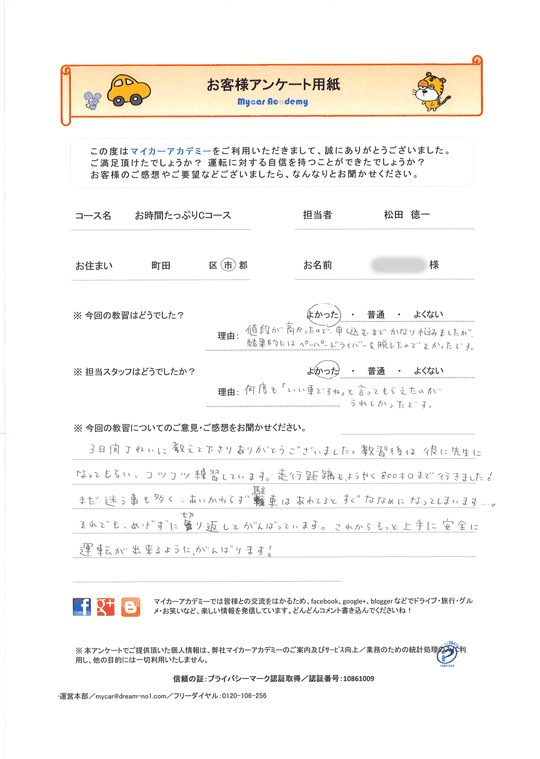 お客様アンケート用紙
Mycar Academy
この度はマイカーアカデミーをご利用いただきまして、誠にありがとうございました。
ご満足頂けたでしょうか？ 運転に対する自信を持つことができたでしょうか？
お客様のご感想やご要望などございましたら、なんなりとお聞かせください。
コース名 お時間たっぷりCコース 担当者 松田 徳一
お住まい 町田 区 市 郡 お名前 様
※ 今回の教習はどうでした？ よかった ・ 普通 ・ よくない
理由: 値段が高かったので、申し込むまでかなり悩みましたが、
結果的にはペーパードライバーを脱したのでよかったです。
※ 担当スタッフはどうでしたか？ よかった ・ 普通 ・ よくない
理由: 何度も「いい車ですね」と言ってもらえたのが
うれしかったです。
※ 今回の教習についてのご意見・ご感想をお聞かせください。
3日間ていねいに教えて下さりありがとうございました。教習後は彼に先生に
なってもらい、コツコツ練習しています。走行距離も、ようやく800キロまで行きました！
まだ迷う事も多く、あいかわらず駐車はあわてるとすぐななめになってしまいます…。
それでも、めげずに切り返してがんばっています。これからもっと上手に安全に
運転が出来るように、がんばります！
マイカーアカデミーでは皆様との交流をはかるため、facebook、google+、bloggerなどでドライブ・旅行・グル
メ・お笑いなど、楽しい情報を発信しています。どんどんコメント書き込んでくださいね！
※ 本アンケートでご提供頂いた個人情報は、弊社マイカーアカデミーのご案内及びサービス向上／業務のための統計処理のみに利
用し、他の目的には一切利用いたしません。
信頼の証：プライバシーマーク認証取得／認証番号：10861009
・運営本部／mycar@dream-no1.com／フリーダイヤル：0120-106-256